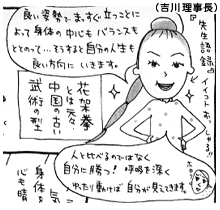 (吉川理事長)
先生語録
イイコトおっしゃる!!
良い姿勢で、まっすぐ立つことに
よって身体の中心もバランスも
ととのって…そうすると自分の人生も
良い方向にいきます。
花架拳
とは元々
中国の古い
武術の型
人と比べるのではなく
自分に勝つ!呼吸を深く
ゆったり動けば自分が見えてきます。
心も晴